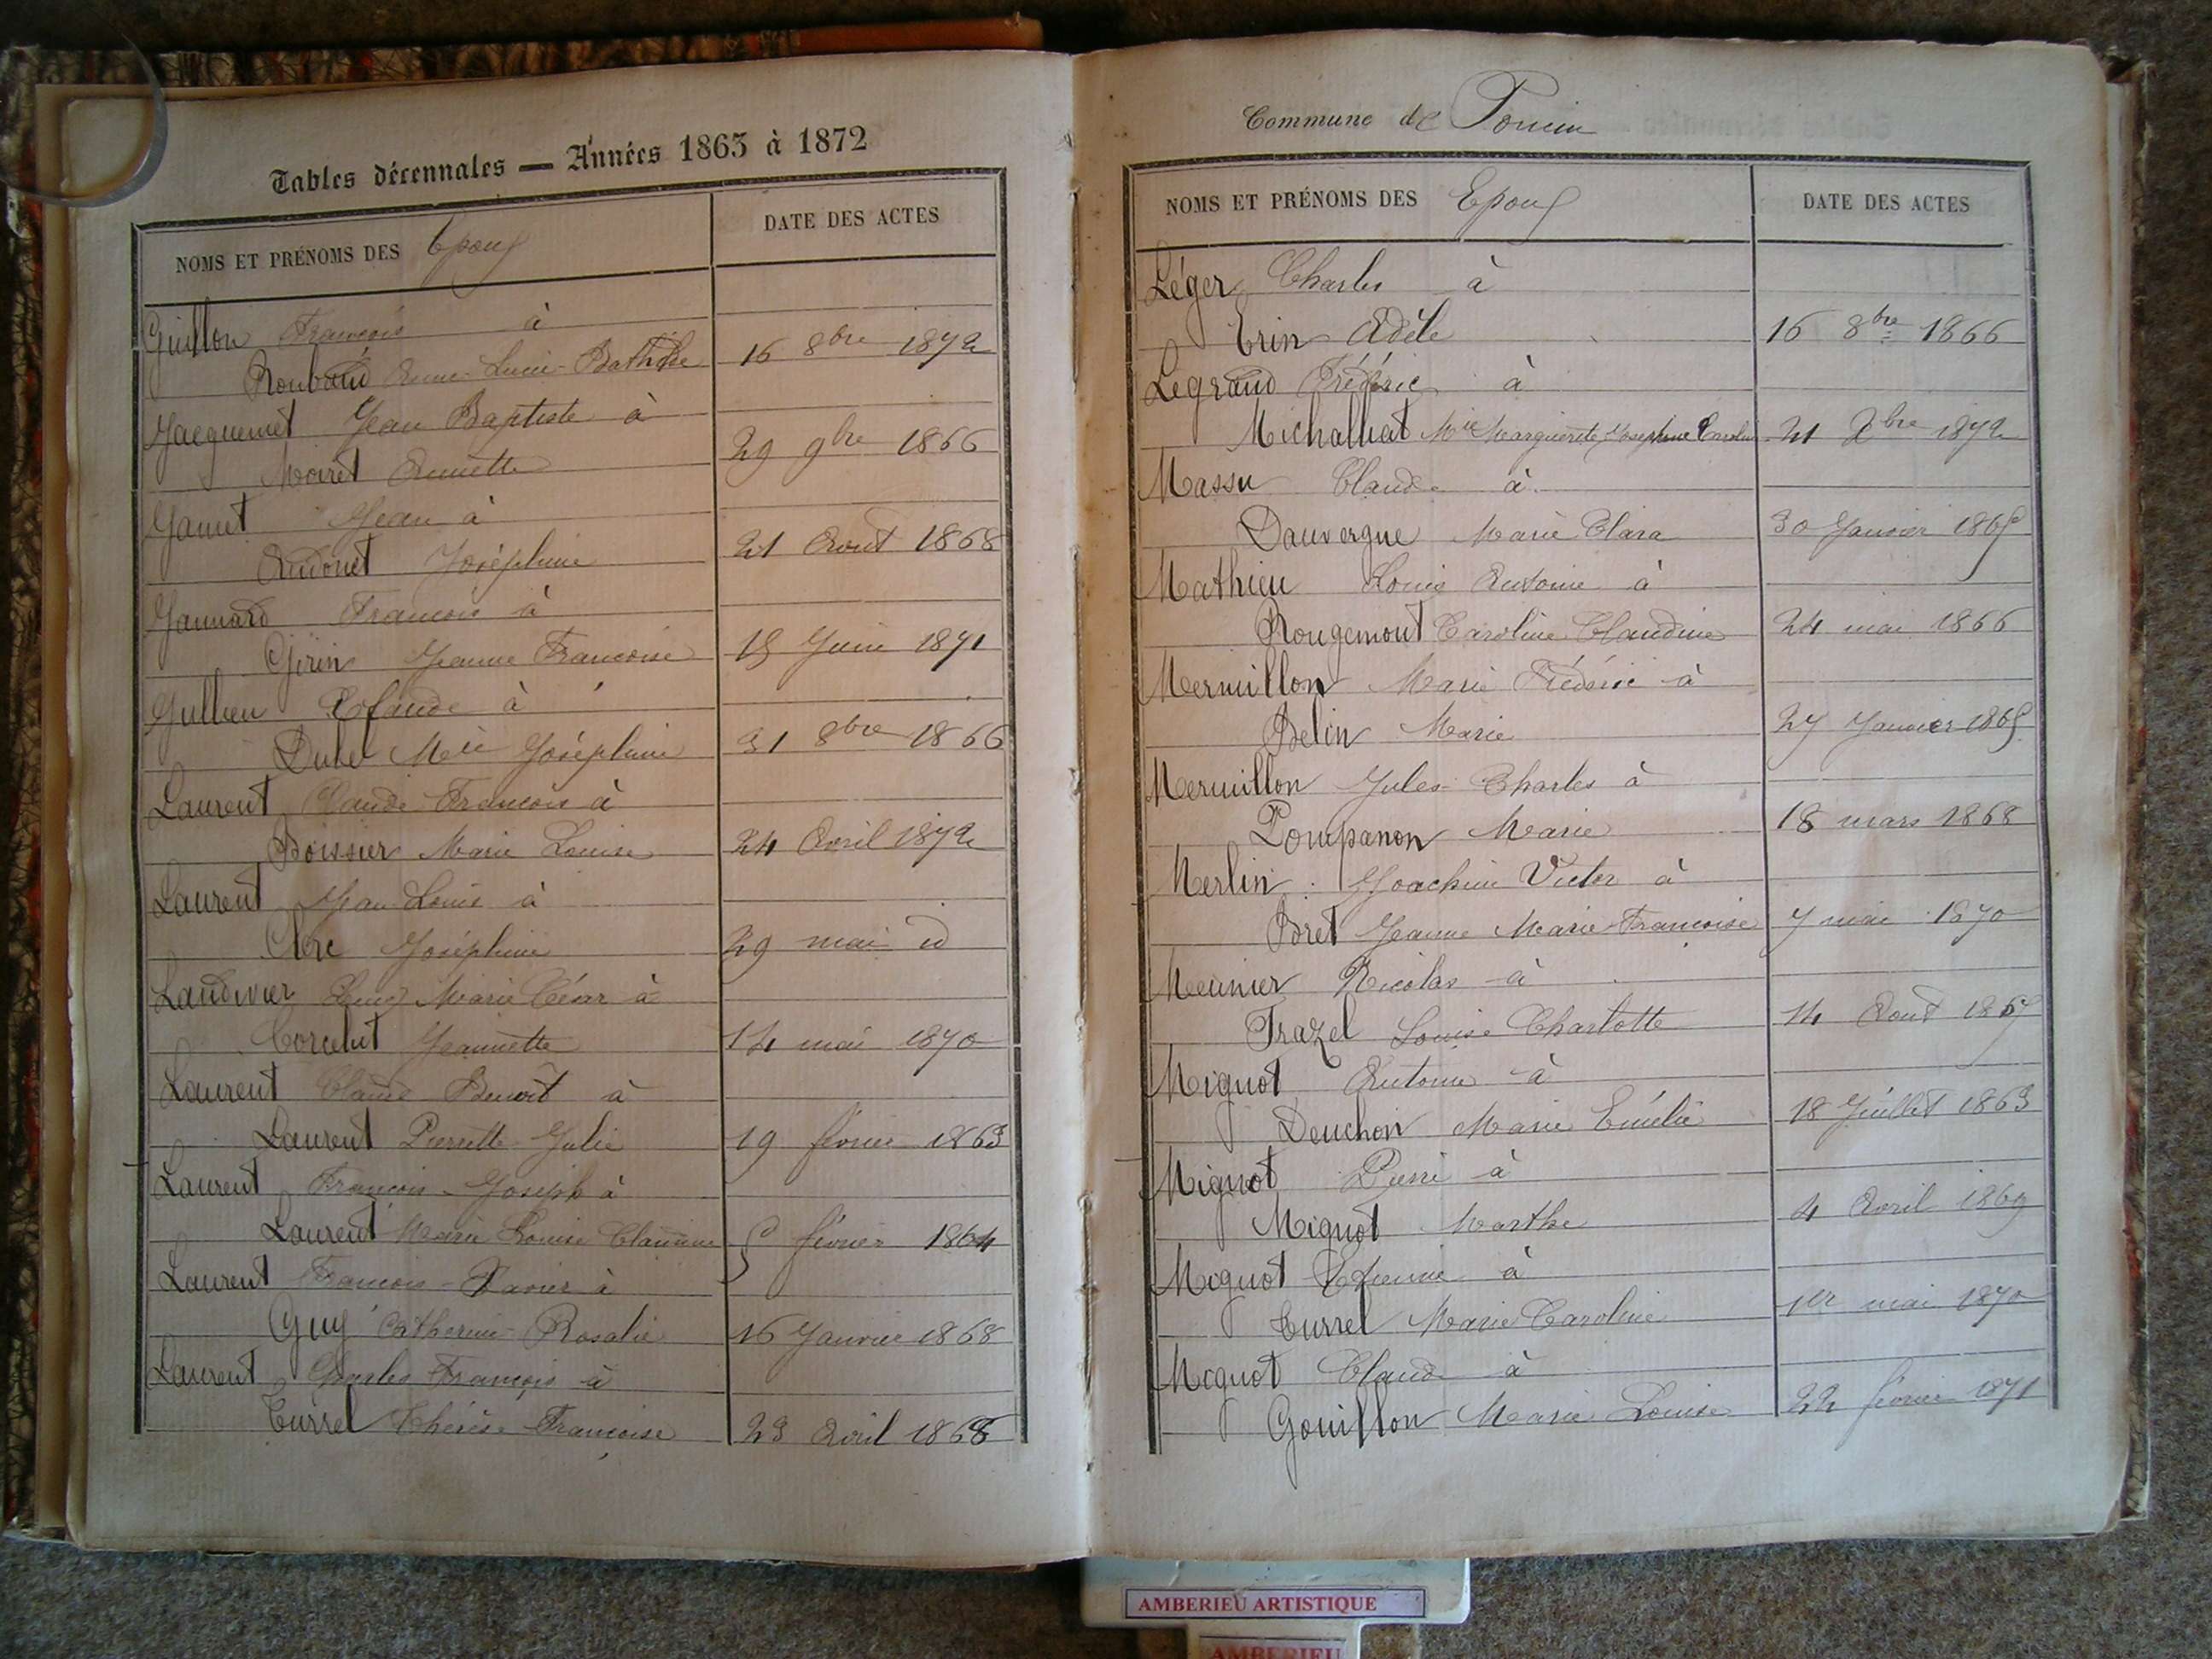 Tables décennales — Années 1863 à 1872
NOMS ET PRÉNOMS DES Epoux
DATE DES ACTES
Guillon François à
Roubaud Anne Lucie Bathilde 16 8bre 1872
Jacquemet Jean Baptiste à
Moiret Annette 29 9bre 1866
Jean à
Joséphine 21 Aout 1868
François à
Girin Jeanne Françoise 15 Juin 1871
Jullien Claude à
Mie Joséphine 31 8bre 1866
Laurent Claude François à
Boissier Marie Louise 24 Avril 1872
Laurent Jean Louis à
Clerc Joséphine 29 mai id
Marie César à
Jeannette 14 mai 1870
Laurent Claude Benoît à
Laurent Pierrette Julie 19 février 1863
Laurent François Joseph à
Laurent Marie Louise Claudine 5 février 1864
Laurent François Xavier à
Guy Catherine Rosalie 16 Janvier 1868
Laurent Charles François à
Turrel Thérèse Françoise 23 Avril 1868
Commune de Poncin
NOMS ET PRÉNOMS DES Epoux
DATE DES ACTES
Léger Charles à
Erin Adèle 16 8bre 1866
Legrand Frédéric à
Michallat Mie Marguerite Josephine 21 1872
Massu Claude à
Dauvergne Marie Clara 30 Janvier 1865
Mathieu Louis Antoine à
Rougemont Caroline Claudine 24 mai 1866
Mermillon Marie Frédéric à
Belin Marie 27 Janvier 1865
Mermillon Jules Charles à
Pompanon Marie 18 mars 1868
Merlin Joachim Victor à
Bret Jeanne Marie Françoise 7 mai 1870
Meunier Nicolas à
Trazel Louise Charlotte 14 Aout
Mignot Antoine à
Deuchon Marie Emélie 18 Juillet 1863
Mignot Pierre à
Mignot Marthe 4 Avril 1869
Mignot Etienne à
Turrel Marie Caroline 1er mai 1870
Mignot Claude à
Gouillon Marie Louise 22 février 1871
AMBERIEU ARTISTIQUE
AMBERIEU